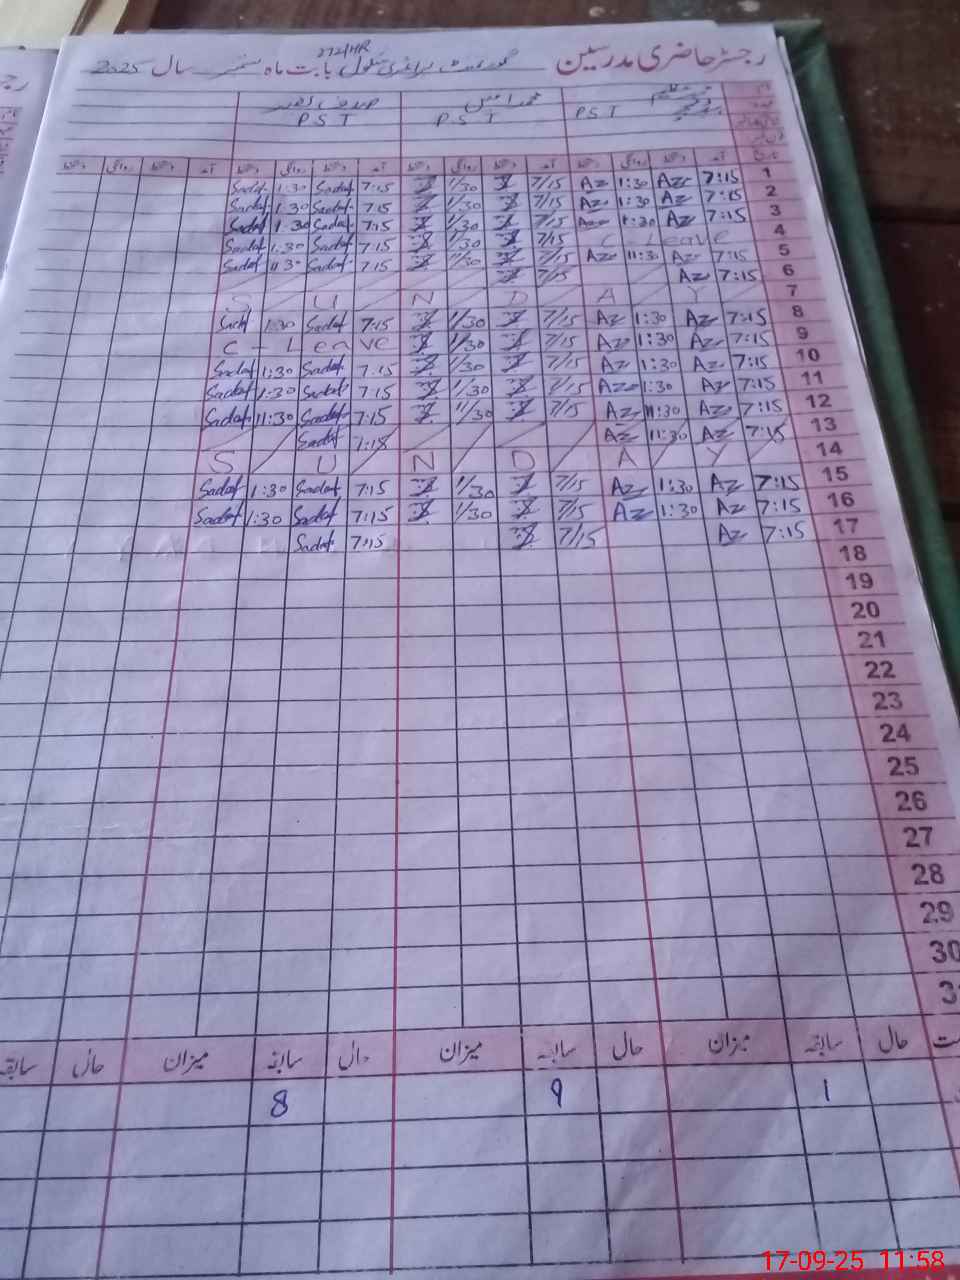 رجسٹر حاضری مدرسین گورنمنٹ پرائمری سکول 272/HR بابت ماہ ستمبر سال 2025
نام محمد امین صدف
PST PST PST
تاریخ آمد دستخط روانگی دستخط آمد دستخط روانگی دستخط آمد دستخط روانگی دستخط آمد دستخط روانگی دستخط
1 7:15 Az 1:30 Az 7/15 1/30 7:15 Sadaf 1:30 Sadaf
2 7:15 Az 1:30 Az 7/15 1/30 7:15 Sadaf 1:30 Sadaf
3 7:15 Az 1:30 Az 7/15 1/30 7:15 Sadaf 1:30 Sadaf
4 C-Leave 7/15 1/30 7:15 Sadaf 1:30 Sadaf
5 7:15 Az 11:30 Az 7/15 1/30 7:15 Sadaf 11:30 Sadaf
6 7:15 Az 7/15
7 SUNDAY
8 7:15 Az 1:30 Az 7/15 1/30 7:15 Sadaf 1:30 Sadaf
9 7:15 Az 1:30 Az 7/15 1/30 C-Leave
10 7:15 Az 1:30 Az 7/15 1/30 7:15 Sadaf 1:30 Sadaf
11 7:15 Az 1:30 Az 7/15 1/30 7:15 Sadaf 1:30 Sadaf
12 7:15 Az 11:30 Az 7/15 11/30 7:15 Sadaf 11:30 Sadaf
13 7:15 Az 11:30 Az 7:15 Sadaf
14 SUNDAY
15 7:15 Az 1:30 Az 7/15 1/30 7:15 Sadaf 1:30 Sadaf
16 7:15 Az 1:30 Az 7/15 1/30 7:15 Sadaf 1:30 Sadaf
17 7:15 Az 7/15 7:15 Sadaf
18
19
20
21
22
23
24
25
26
27
28
29
30
3
حال سابقہ میزان حال سابقہ میزان حال سابقہ میزان حال سابقہ
1 9 8
17-09-25 11:58